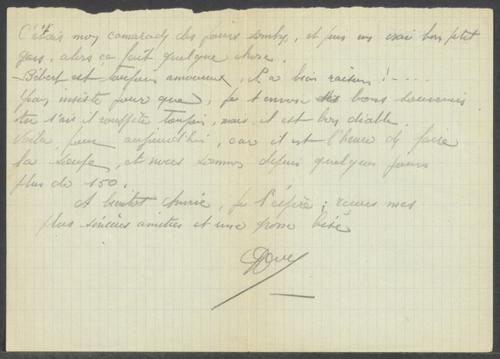 C'était mon camarade des jours sombres, et puis un vrai bon p'tit
gars, alors ça fait quelque chose.
- Bébert est toujours amoureux, il a bien raison ! - - - -
Yvan insiste pour que je t'envoie des bons souvenirs.
tu sais il rouspète toujours, mais il est bon diable.
Voilà pour aujourd'hui, car il est l'heure de faire
la soupe, et nous sommes depuis quelques jours
plus de 150.
A bientôt chérie, je l'espère ; reçois mes
plus sincères amitiés et une grosse bise